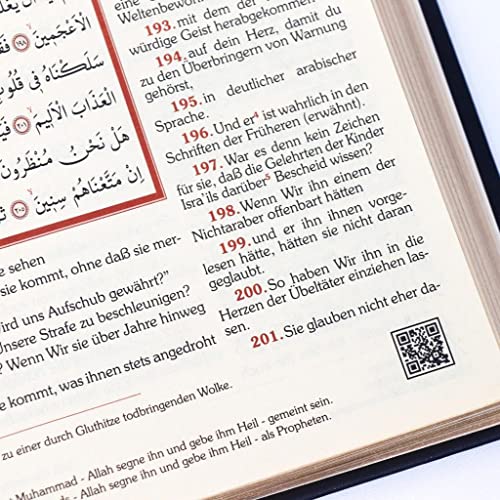 الْأَعْجَمِينَ ١٩٨
سَلَكْنَاهُ فِي
الْعَذَابَ الْأَلِيمَ ٢٠١
هَلْ نَحْنُ مُنْظَرُونَ
إِنْ مَتَّعْنَاهُمْ سِنِينَ ٢٠٥
Weltenbewohn
193. mit dem der
würdige Geist herabgekommen
194. auf dein Herz, damit du
zu den Überbringern von Warnung
gehörst,
195. in deutlicher arabischer
Sprache.
196. Und er⁴ ist wahrlich in den
Schriften der Früheren (erwähnt).
197. War es denn kein Zeichen
für sie, daß die Gelehrten der Kinder
Isra'ils darüber⁵ Bescheid wissen?
198. Wenn Wir ihn einem der
Nichtaraber offenbart hätten
199. und er ihn ihnen vorge-
lesen hätte, hätten sie nicht daran
geglaubt.
200. So haben Wir ihn in die
Herzen der Übeltäter einziehen las-
sen.
201. Sie glauben nicht eher da-
sehen
sie kommt, ohne daß sie mer-
ird uns Aufschub gewährt?"
nsere Strafe zu beschleunigen?
? Wenn Wir sie über Jahre hinweg
e kommt, was ihnen stets angedroht
zu einer durch Gluthitze todbringenden Wolke.
Muhammad - Allah segne ihn und gebe ihm Heil - gemeint sein.
ds - Allah segne ihn und gebe ihm Heil - als Propheten.